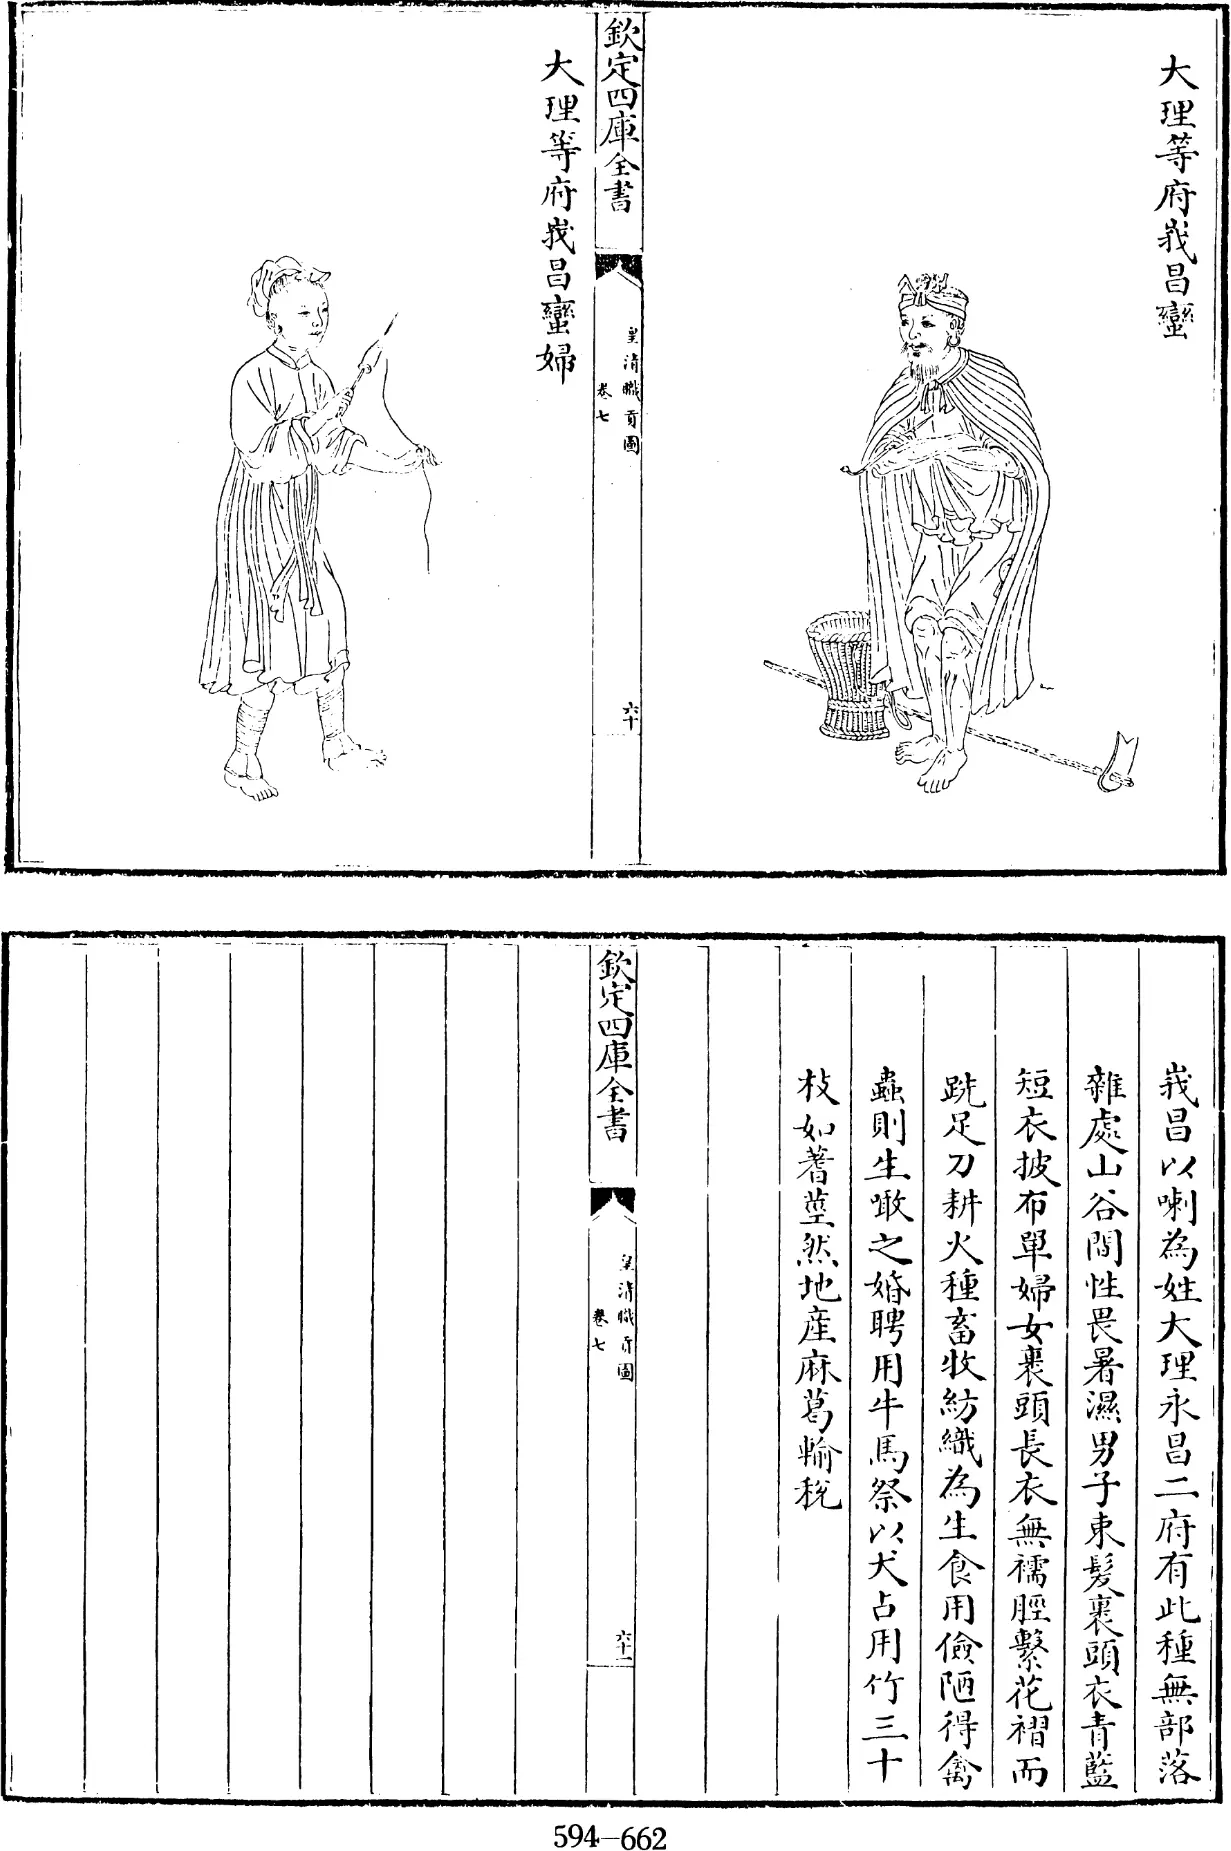 大理等府峩昌蠻
欽定四庫全書
皇清職貢圖
卷七
六十
大理等府峩昌蠻婦
峩昌以喇為姓大理永昌二府有此種無部落
雜處山谷間性畏暑濕男子束髮裹頭衣青藍
短衣披布單婦女裹頭長衣無襦脛繫花褶而
跣足刀耕火種畜牧紡織為生食用儉陋得禽
蟲則生噉之婚聘用牛馬祭以犬占用竹三十
枝如蓍莖然地産麻葛輸稅
欽定四庫全書
皇清職貢圖
卷七
六十一
594-662